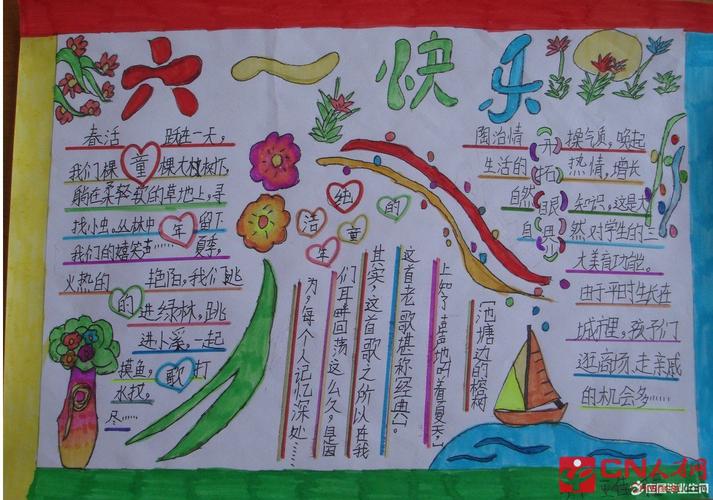 六一快乐
春活跃在一天，
我们棵棵大树下，
躺在柔轻软的草地上，寻
找小虫，丛林中留下
我们的嬉笑声……夏季，
火热的艳阳，我们跳
进绿林，跳
进小溪，一起
摸鱼，打
水杖，
尽……
童年的歌
纯
活童的
年
［池塘边的榕树
上知了声声地叫着夏天］
这首老歌堪称经典。
其实，这首歌之所以在我
们耳畔回荡这么久，是因
为，每个人记忆深处……
陶冶情操气质，唤起
生活的热情，增长
自然知识，这是大
自然对学生的三
大美育功能。
由于平时生长在
城市里，孩子们
逛商场、走亲戚
的机会多……
开拓眼界
CN人才网